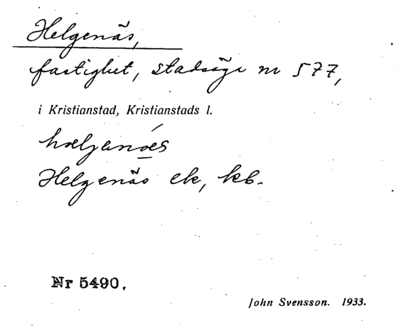 Helgenäs,
fastighet, stadsäga nr 577,
i Kristianstad, Kristianstads l.
hæljenǽs
Helgenäs ek, kb.
Nr 5490.
John Svensson. 1933.